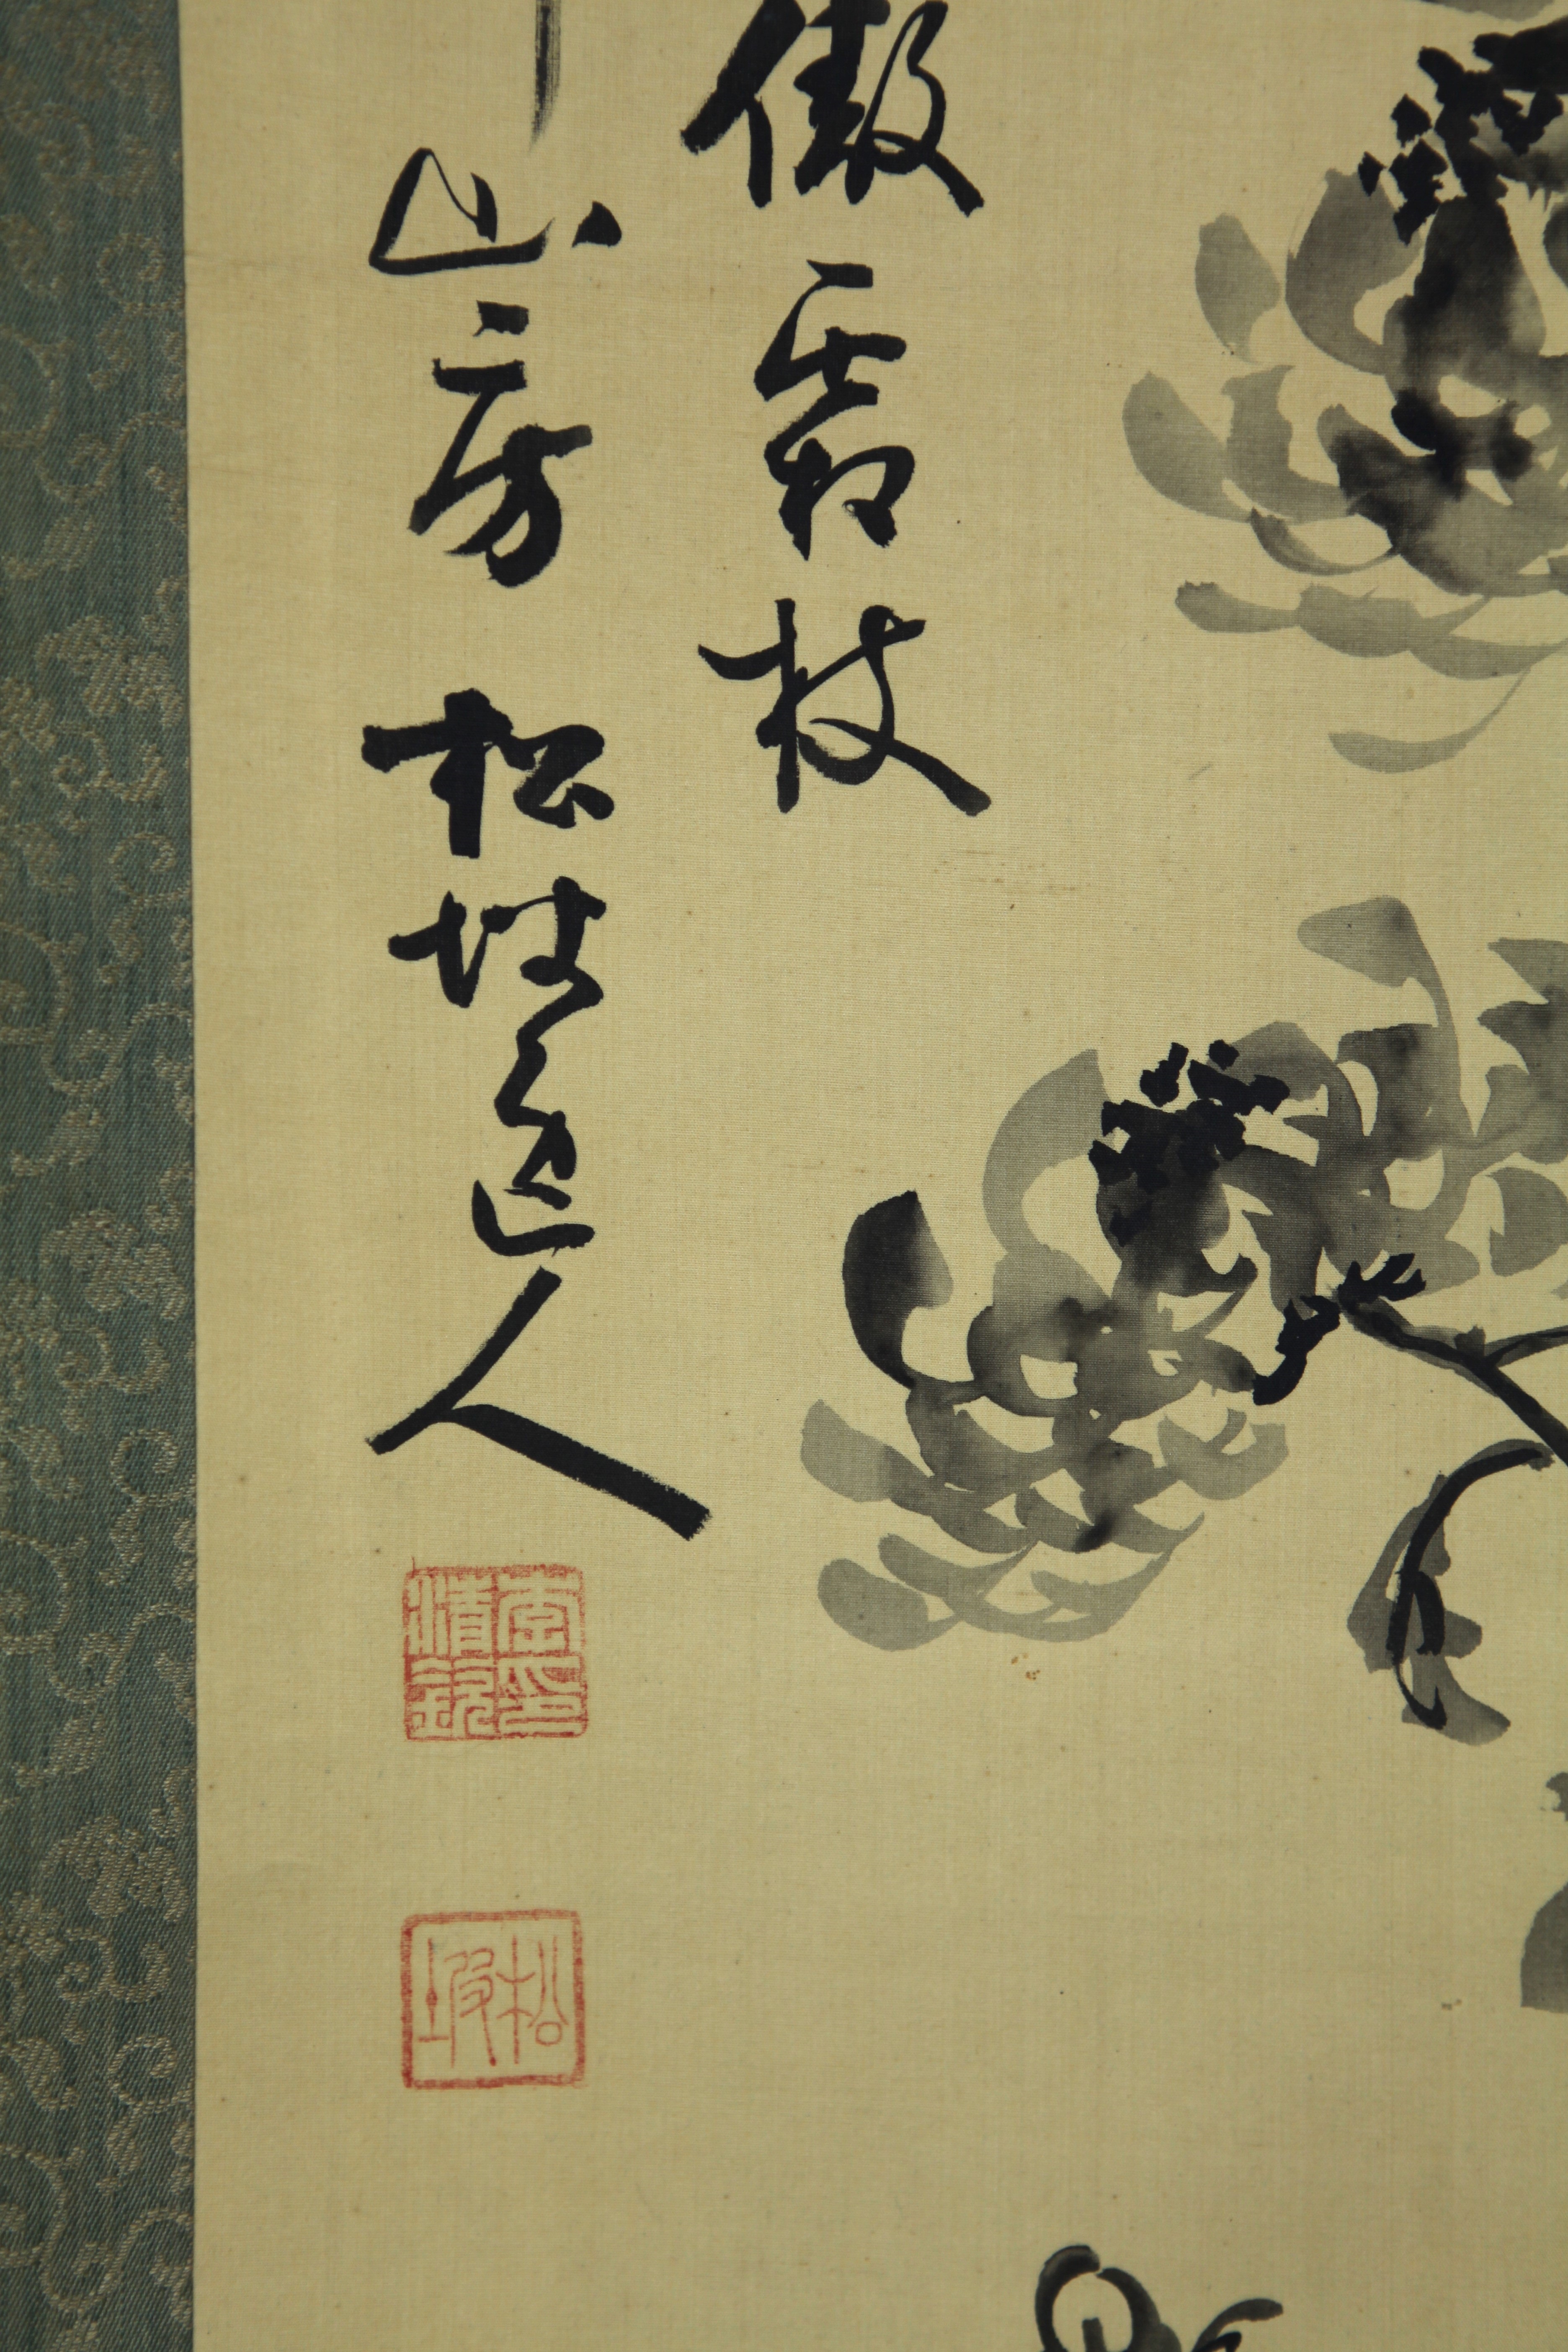 傲霜枝
山房 松坡道人
松坡